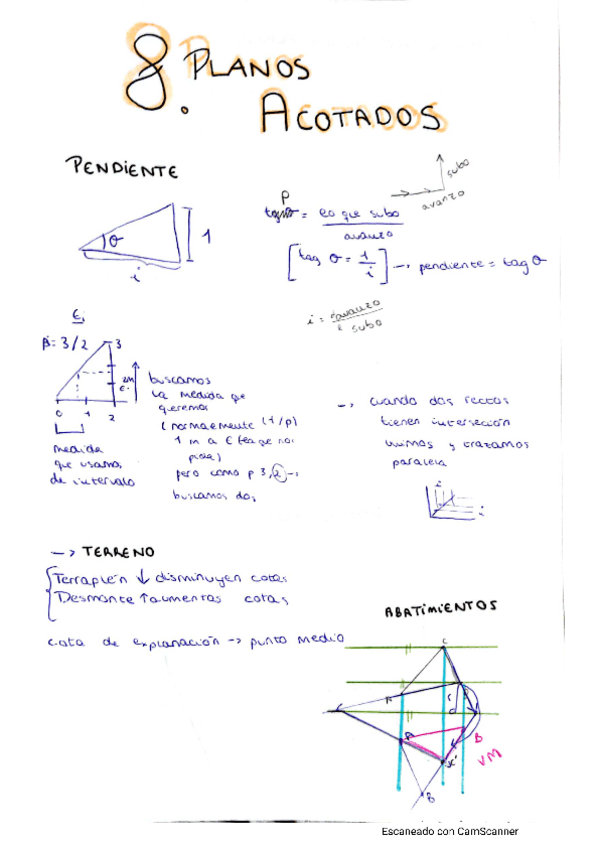 8. PLANOS
ACOTADOS
PENDIENTE
subo
avanzo
P
= lo que subo
avanzo
θ
1
i
[tag θ = 1/i] → pendiente = tag θ
i = avanzo
subo
Ej
p = 3/2
3
0 1 2
buscamos
la medida que
queremos
(normalmente (1/p)
1 m a
pide)
pero como p 3/2 →
buscamos dos
medida
que usamos
de intervalo
→ cuando dos rectas
tienen intersección
unimos y trazamos
paralela
i
i
→ TERRENO
Terraplén ↓ disminuyen cotas
Desmonte ↑ aumentas cotas
cota de explanación → punto medio
ABATIMIENTOS
C
A
B
VM
B
Escaneado con CamScanner